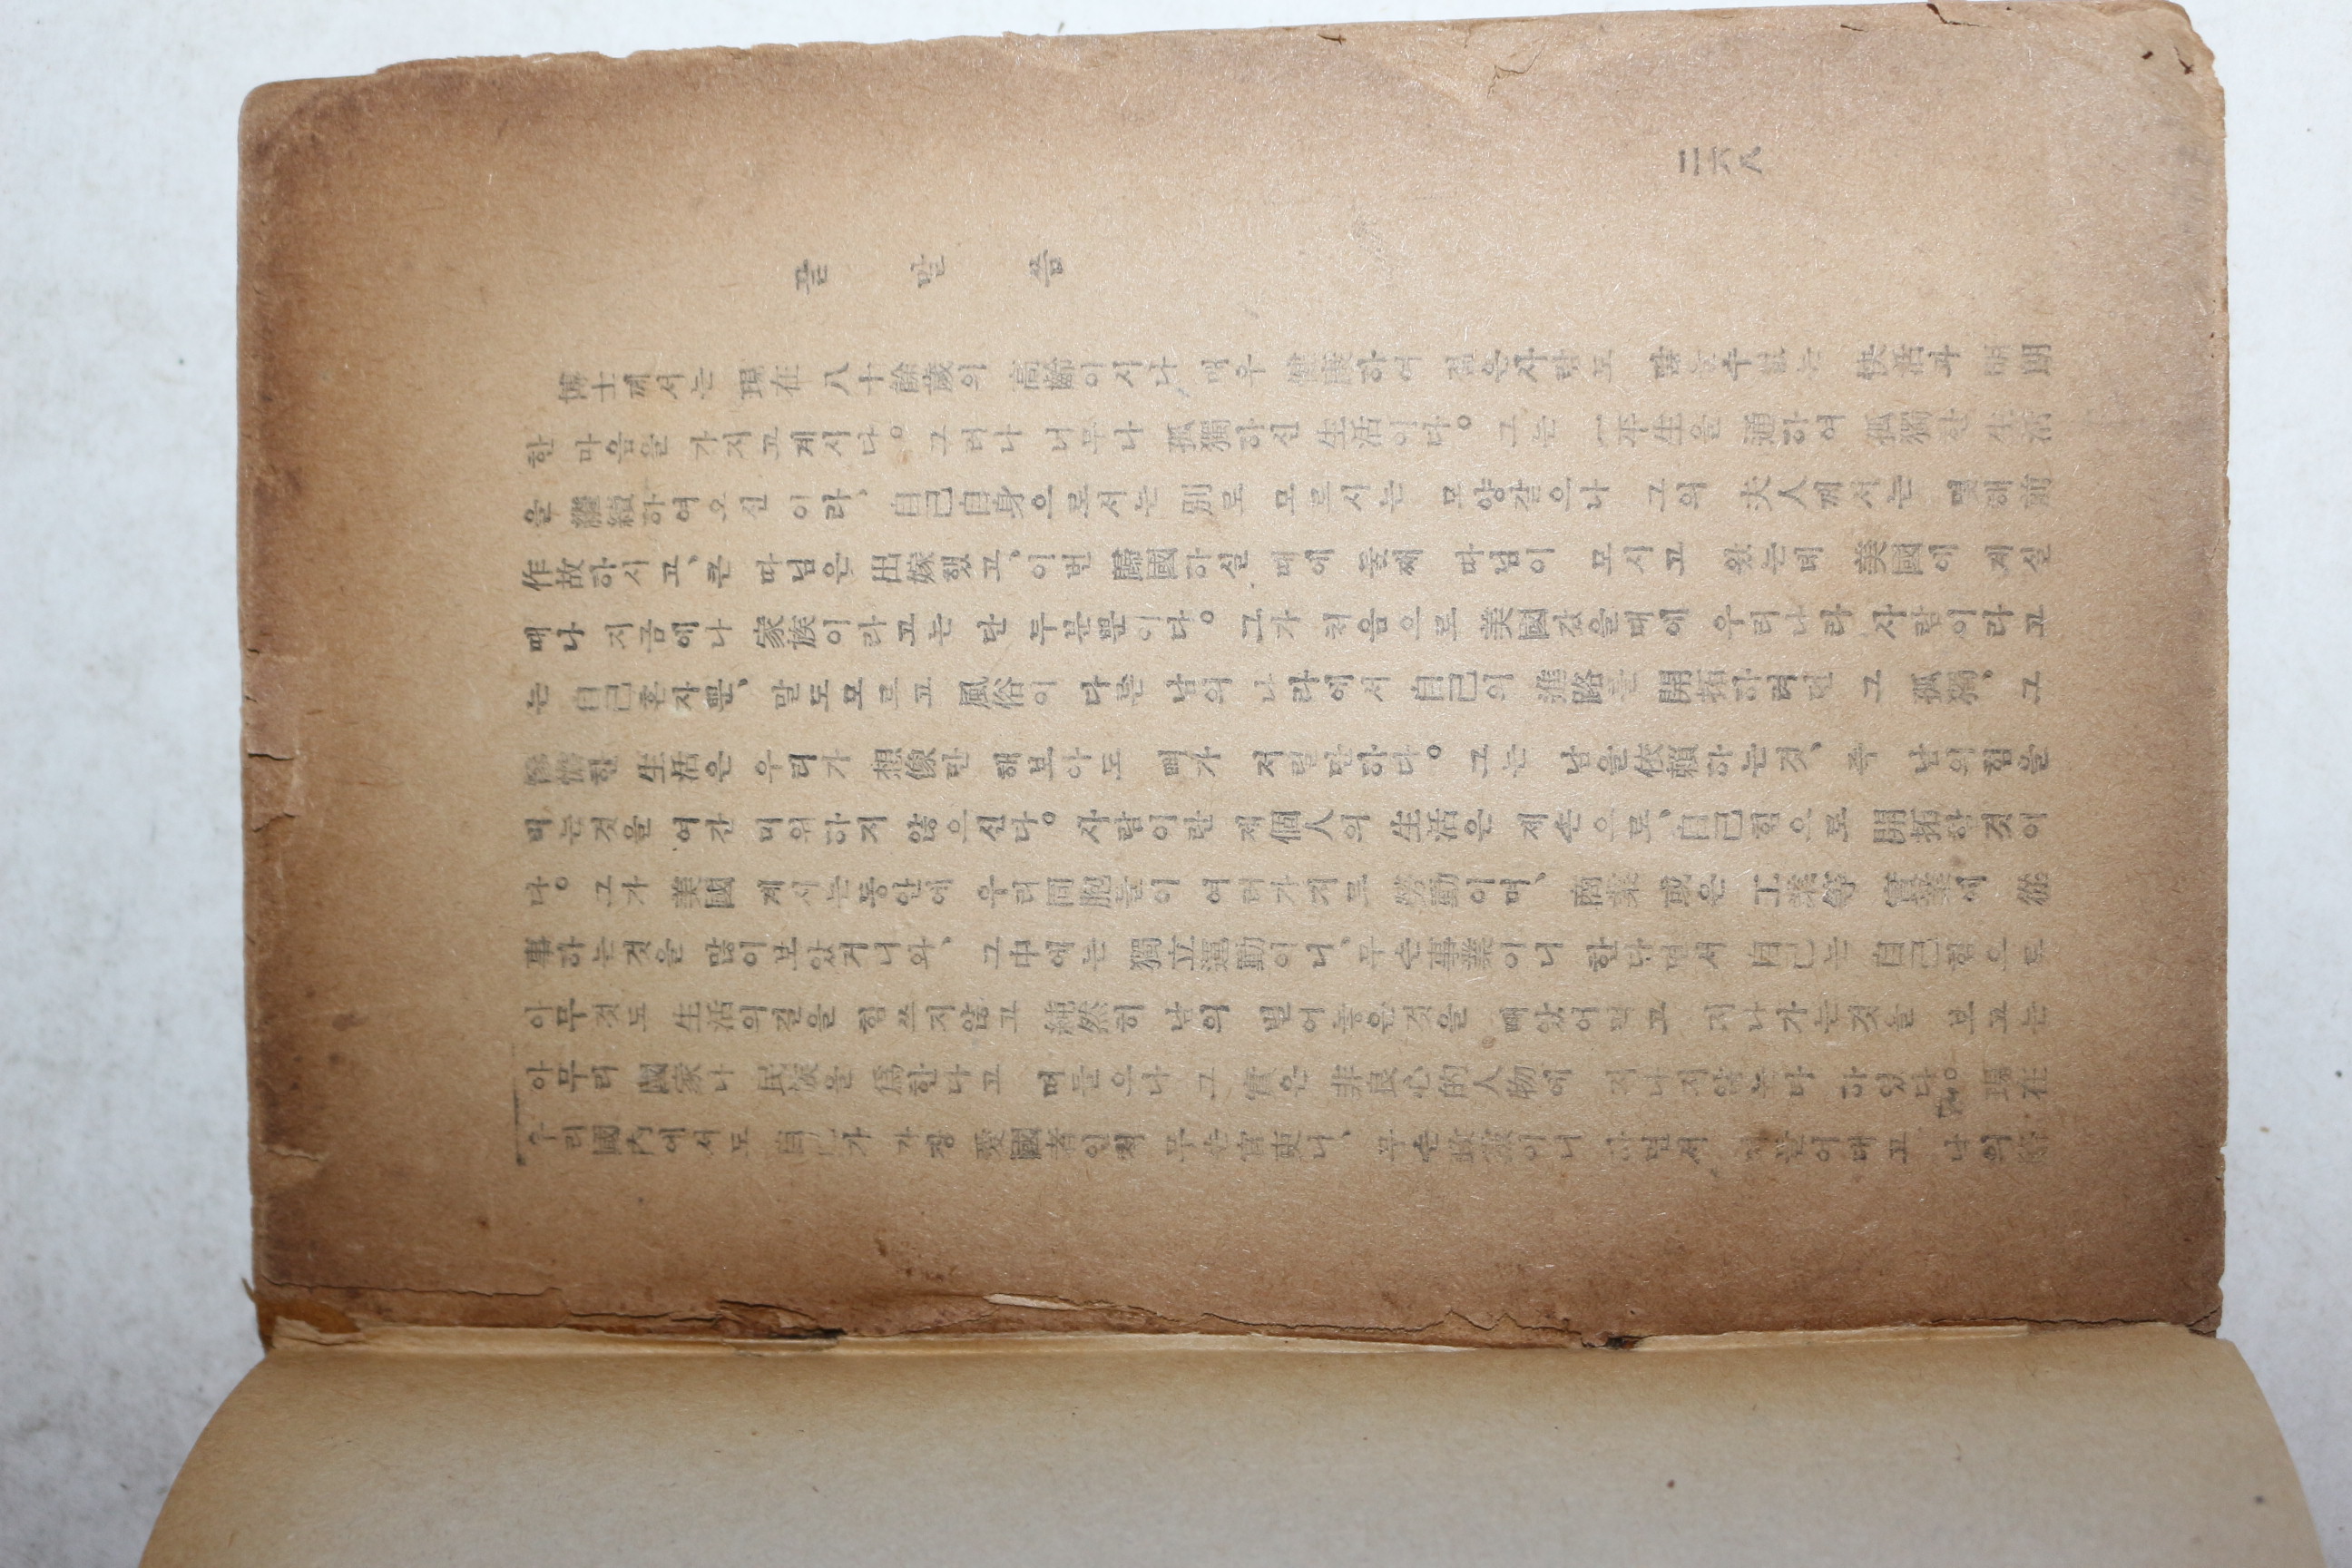 二六八
끝 말 씀
博士께서는 現在 八十餘歲의 高齡이시나, 매우 健康하여 젊은사람도 따를수없는 快活과 明朗
한 마음을 가지고계시다。그러나 너무나 孤獨하신 生活이다。그는 一平生을 通하여 孤獨한 生活
을 繼續하여오신 이라、自己自身으로서는 別로 모르시는 모양같으나 그의 夫人께서는 몇해前
作故하시고、큰 따님은 出嫁했고、이번 歸國하실 때에 둘째 따님이 모시고 왔는데 美國에 계실
때나 지금에나 家族이라고는 단 두분뿐이다。그가 처음으로 美國갔을때에 우리나라 사람이라고
는 自己혼자뿐、말도모르고 風俗이 다른 남의 나라에서 自己의 進路를 開拓하려던 그 孤獨、그
한 生活은 우리가 想像만 해보아도 뼈가 저릴만하다。그는 남을依賴하는것、즉 남의힘을
믿는것을 여간 미워하지 않으신다。사람이란 제個人의 生活은 제손으로、自己힘으로 開拓할 것이
다。그가 美國 계시는동안에 우리同胞들이 여러가지로 勞動이며、商業 或은 工業等 實業에 從
事하는것을 많이보았거니와、그中에는 獨立運動이니、무슨事業이니 한다면서 自己는 自己힘으로
아무것도 生活의길을 힘쓰지않고 純然히 남의 벌어놓은것을 빼았어먹고 지나가는것을 보고는
아무리 國家나 民族을 爲한다고 떠들으나 그 實은 非良心的人物에 지나지않는다 하였다。現在
우리國內에서도 自己가 가장 愛國者인체 무슨官吏나、무슨政黨이니 하면서 남의